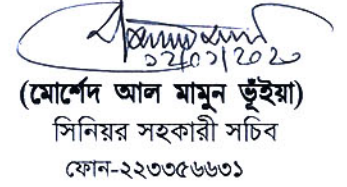 ১২/০১/২০২০
(মোর্শেদ আল মামুন ভূঁইয়া)
সিনিয়র সহকারী সচিব
ফোন-২২৩৩৫৬৬৩১